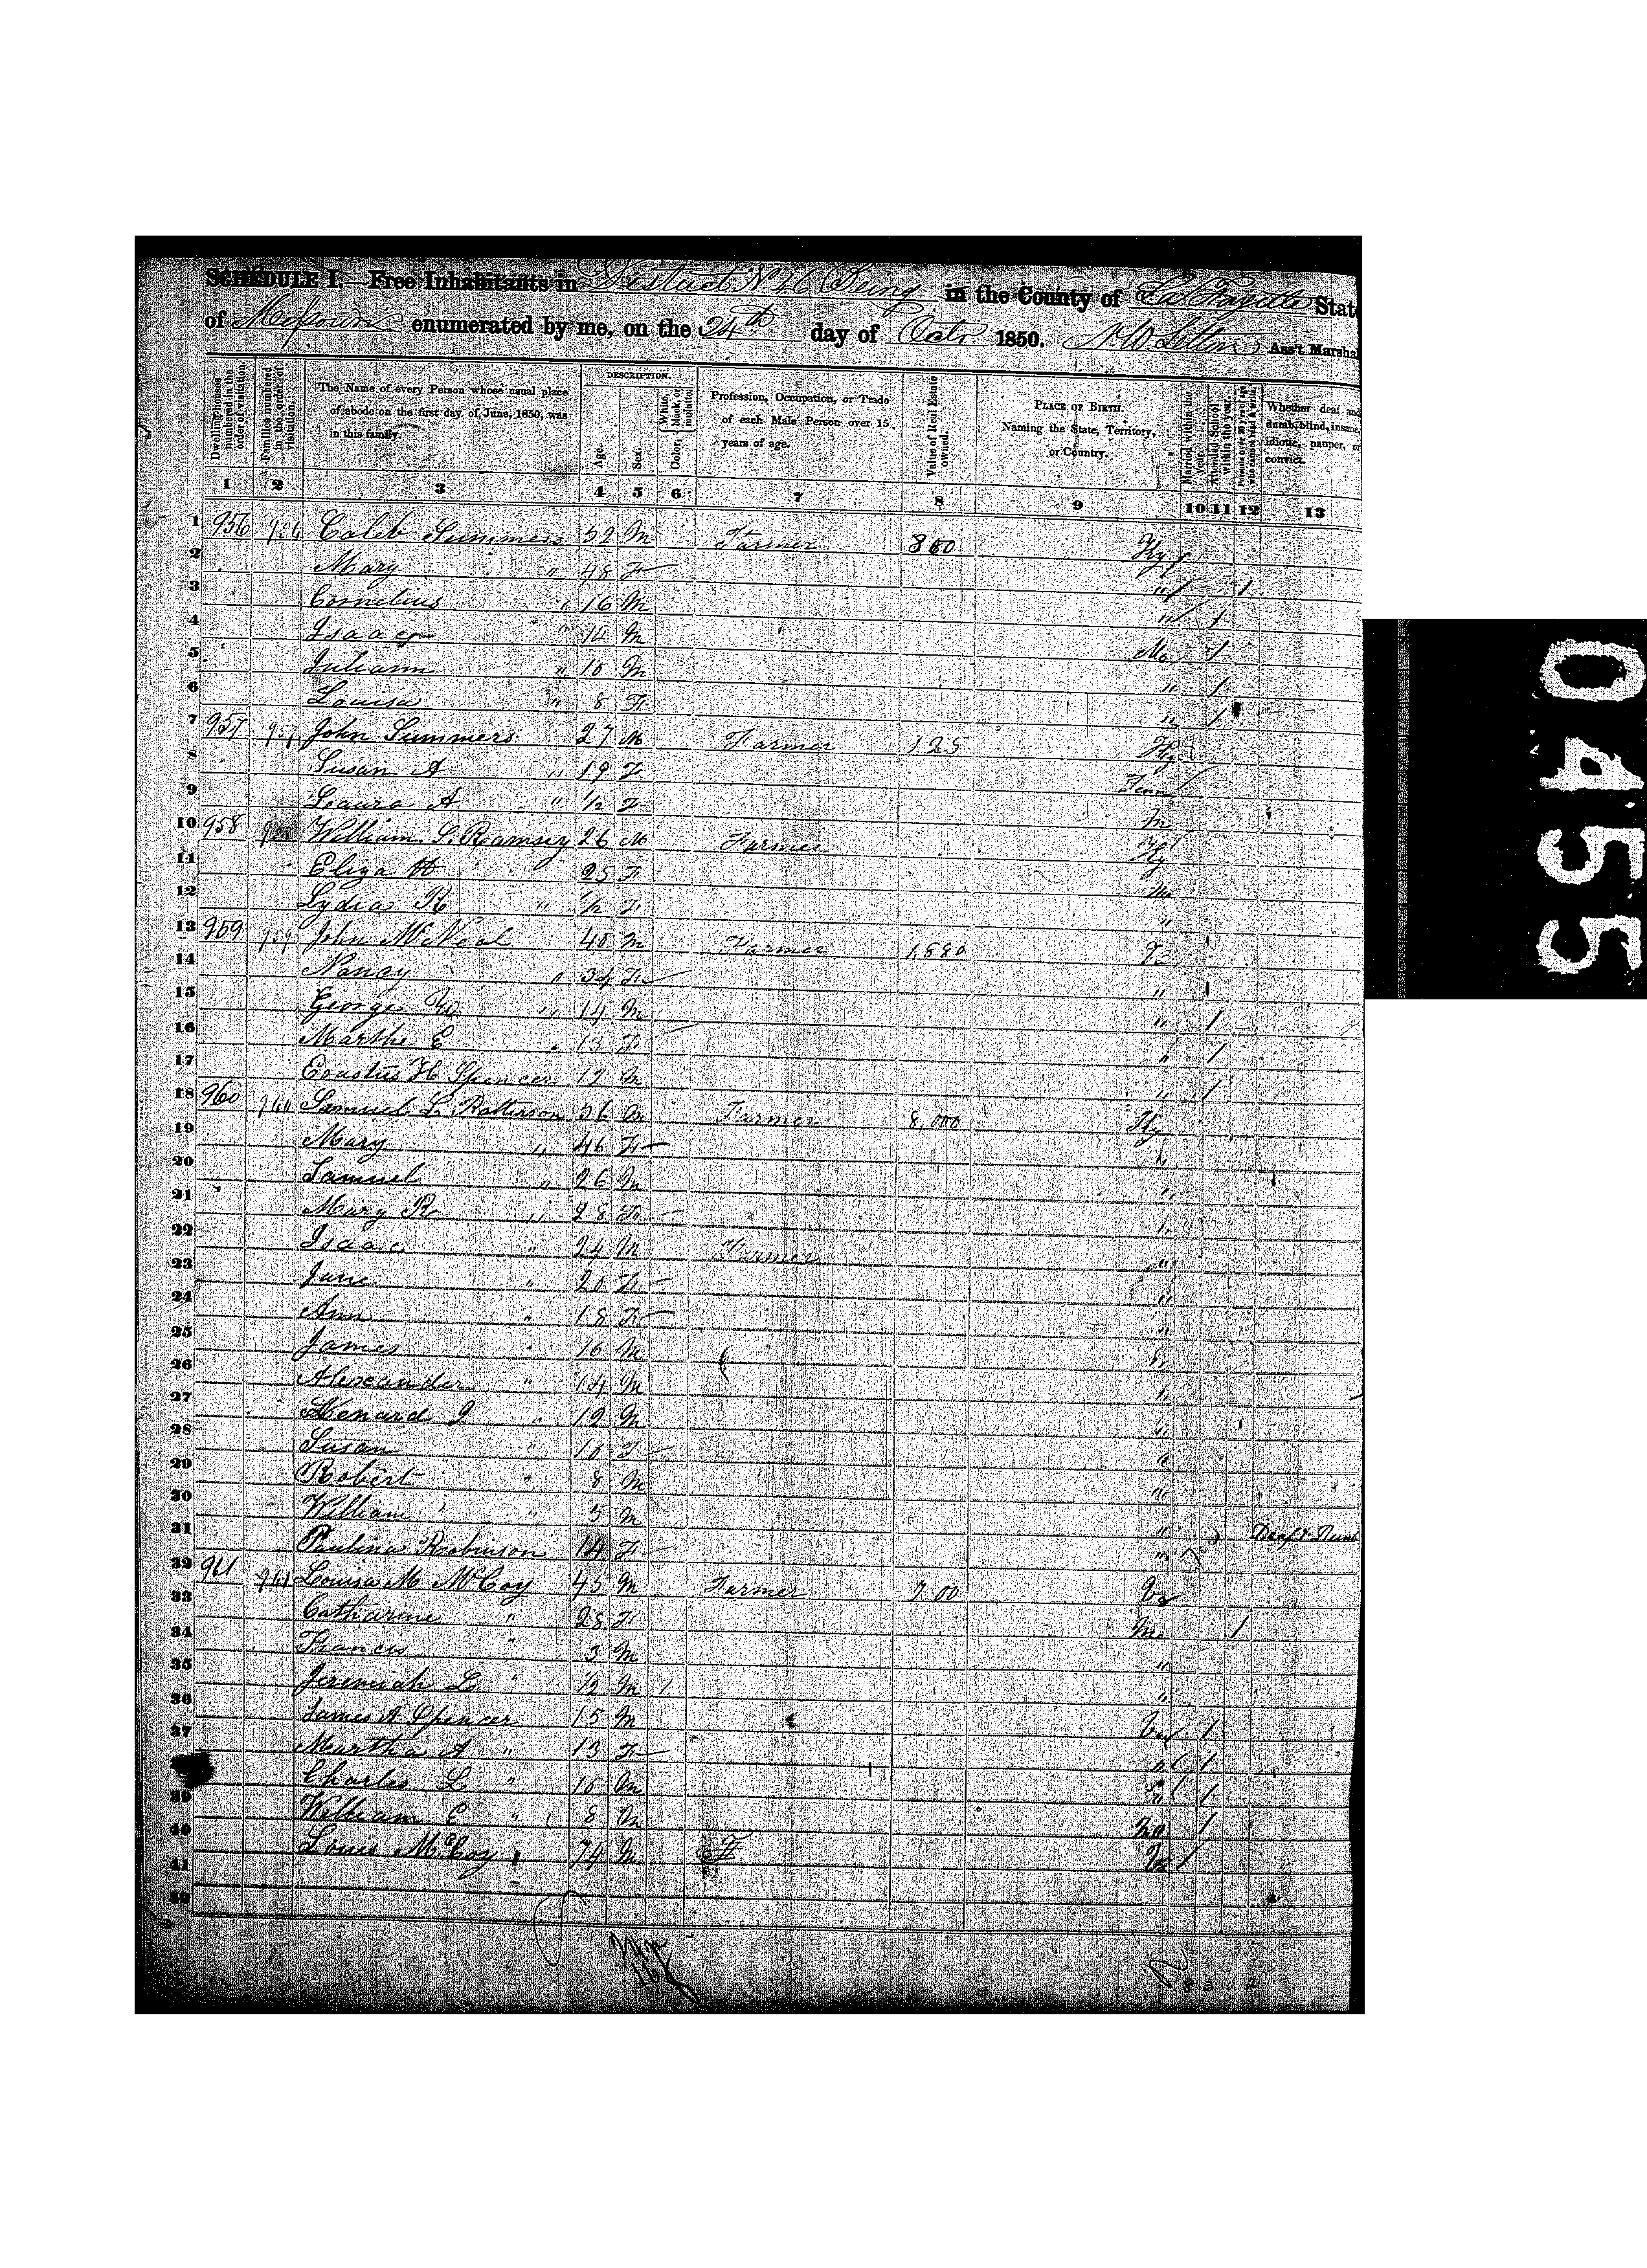 SCHEDULE I.—Free Inhabitants in District No 46 Being in the County of La Fayette State
of Missouri enumerated by me, on the 24th day of Octr 1850. Ass't Marshal
Dwelling-houses numbered in the order of visitation.
Families numbered in the order of visitation.
The Name of every Person whose usual place of abode on the first day of June, 1850, was in this family.
DESCRIPTION.
Age.
Sex.
Color, White, black, or mulatto.
Profession, Occupation, or Trade of each Male Person over 15 years of age.
Value of Real Estate owned.
PLACE OF BIRTH.
Naming the State, Territory, or Country.
Married within the year.
Attended School within the year.
Persons over 20 y'rs of age who cannot read & write.
Whether deaf and dumb, blind, insane, idiotic, pauper, or convict.
1 2 3 4 5 6 7 8 9 10 11 12 13
1 956 956 Caleb Summers 52 M Farmer 800 Ky
2 Mary " 48 F " 1
3 Cornelius " 16 M " 1
4 Isaac " 14 M Mo 1
5 Juliann " 10 M " 1
6 Louisa " 8 F " 1
7 957 957 John Summers 27 M Farmer 125 Ky
8 Susan A " 19 F Tenn
9 Laura A " 1/2 F
10 958 958 William S. Ramsey 26 M Farmer Ky
11 Eliza 25 F Mo
12 Lydia R " 1/2 F "
13 959 959 John McNeal 40 M Farmer Va
14 Nancy " 34 F "
15 George W " 14 M " 1
16 Martha E " 13 F " 1
17 Erastus H. Spencer 12 M " 1
18 960 960 Samuel L. Patterson 56 M Farmer 8,000 Ky
19 Mary " 46 F "
20 Samuel " 26 M "
21 Mary R " 28 F "
22 Isaac " 24 M Farmer "
23 Jane " 20 F "
24 Ann " 18 F "
25 James " 16 M "
26 Alexander " 14 M "
27 12 M "
28 Susan " 10 F "
29 Robert " 8 M "
30 William " 5 M "
31 Paulina Robinson 14 F " Deaf & Dumb
32 961 961 Louisa M McCoy 45 M Farmer 700 Va
33 Catharine " 28 F Mo 1
34 Francis " 3 M "
35 Jeremiah L " 1/2 M "
36 James A Spencer 15 M Va 1
37 Martha A " 13 F " 1
Charles L " 10 M " 1
39 William E " 8 M Mo 1
40 Louis McCoy 74 M F Va
41
42
0455